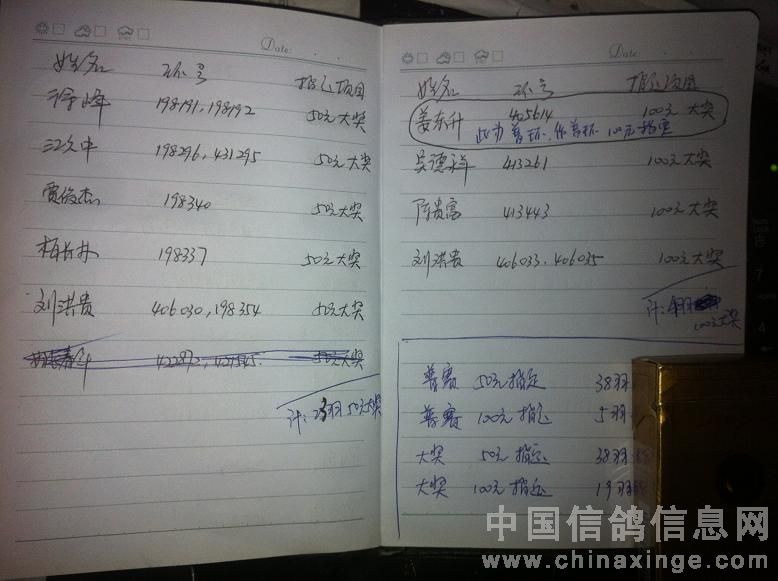 Date:
姓名 环号 指定项目
徐峰 198191,198192 50元大奖
江久中 198296,431295 50元大奖
贾俊杰 198340 50元大奖
198337 50元大奖
刘洪贵 406030,198354 50元大奖
50元大奖
计: 羽 50元大奖
Date:
姓名 环号 指定项目
姜东升 405614 100元大奖
此为普环、作普环 100元指定
吴德祥 413261 100元大奖
陈贵富 413443 100元大奖
刘洪贵 406033、406035 100元大奖
计:
100元大奖
普赛 50元指定 38羽
普赛 100元指定 5羽
大奖 50元指定 38羽
大奖 100元指定 19羽
中国信鸽信息网
www.chinaxinge.com